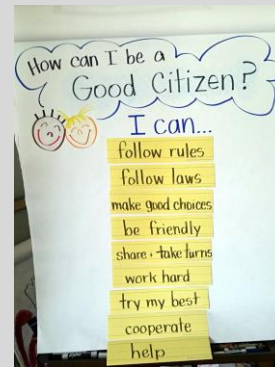 How can I be a
Good Citizen?
I can...
follow rules
follow laws
make good choices
be friendly
share + take turns
work hard
try my best
cooperate
help